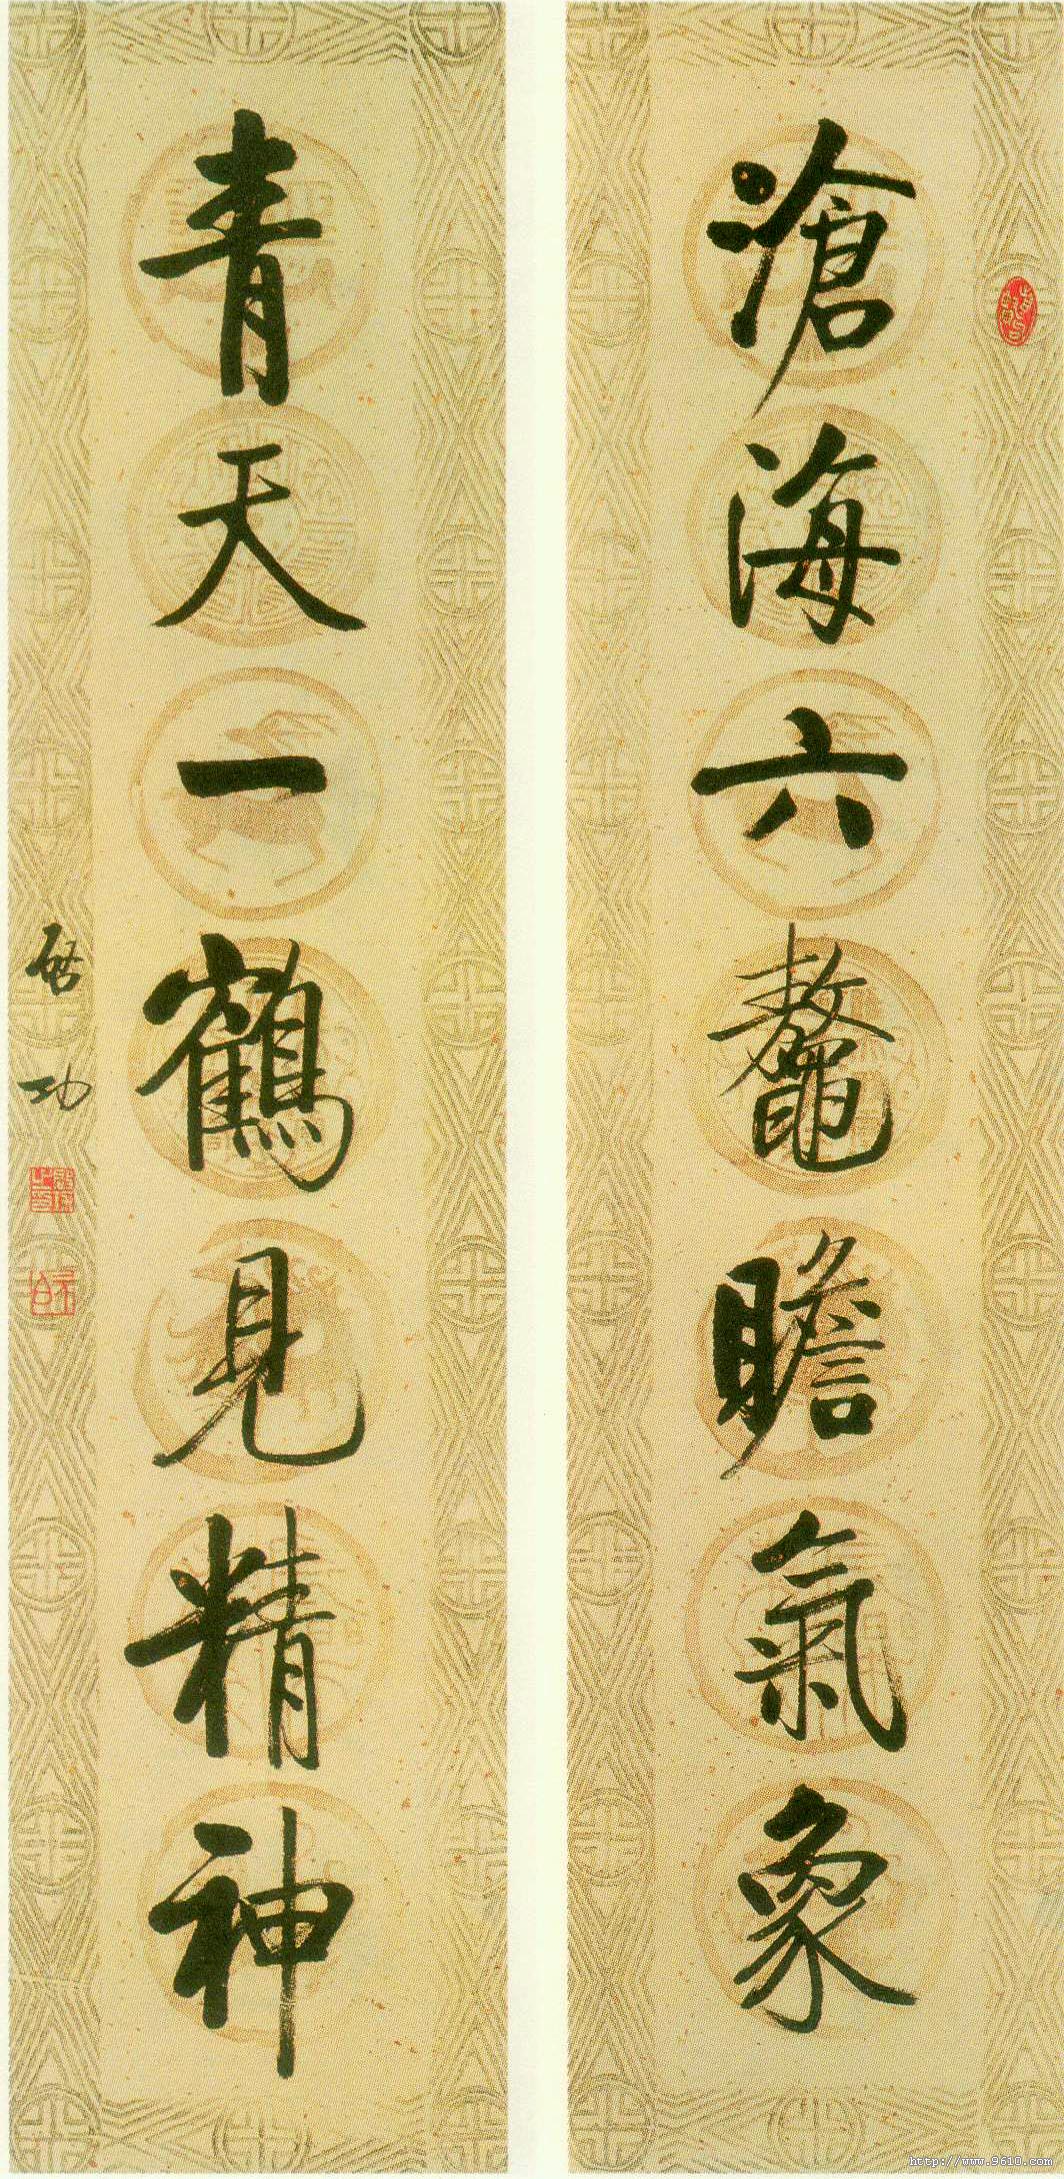 滄海六鼇瞻氣象
青天一鶴見精神
啓功
http://www.9610.com